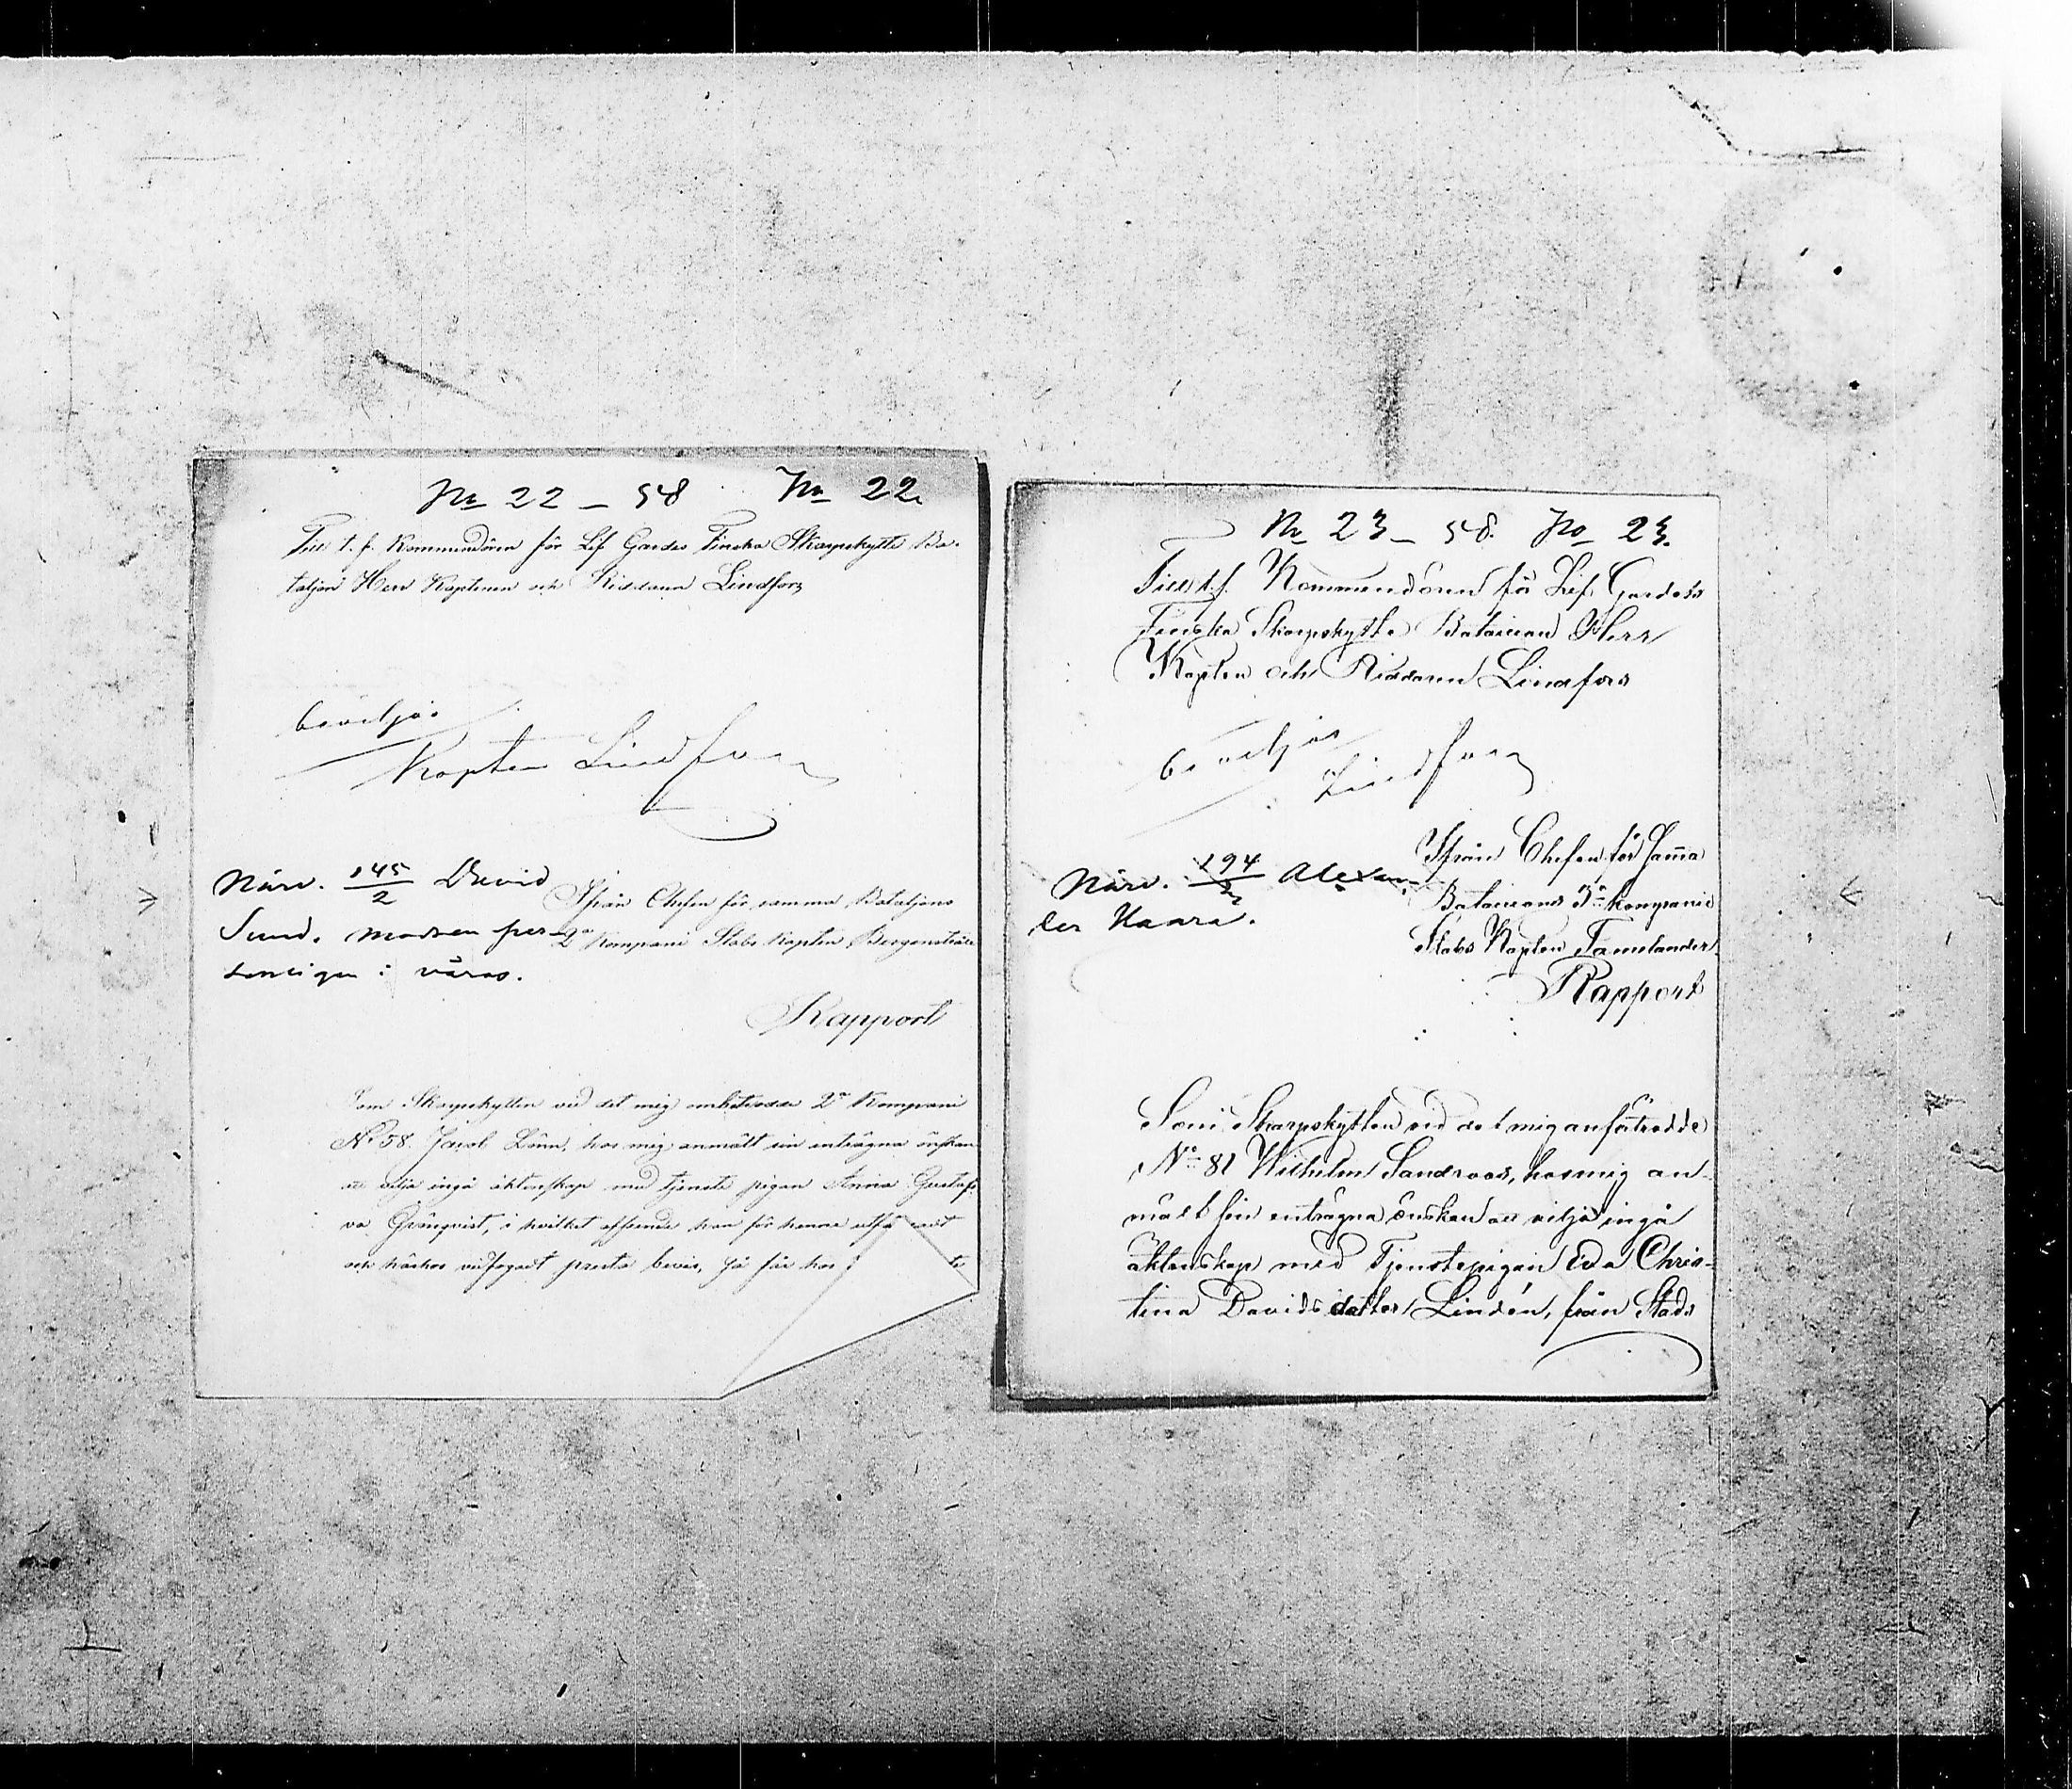 No 22 – 58 No 22.
Till t. f. Kommendören för Lif Gardes Finska Skarpskytte Ba-
taljon Herr Kaptenen och Riddaren Lindfors
beviljas
Kapten Lindfors
Närv. 145/2 David
Sund.
Ifrån Chefen för samma Bataljons
2a Kompani Stabs Kapten Bergenstråle
Rapport
Som Skarpskytten vid det mig anbetrodde 2a Kompani
No 58. Jacob Lönn, hos mig anmält sin enträgna önskan
att vilja ingå äktenskap med tjenste pigan Anna Gustafs-
va Grönqvist, i hvilket afseende han för henne utfå
och härhos vidfogat presta bevis, så får hos
No 23 – 58. No 23.
Till t.f. Kommendören för Lif Gardets
Finska Skarpskytte Bataillon Herr
Kapten och Riddaren Lindfors
beviljas
Lindfors
Närv. 194/2 Alexan-
der Haara.
Ifrån Chefen för samma
Bataillons 3e Kompanie
Stabs Kapten Tamelander.
Rapport
Som Skarpskytten vid det mig anförtrodde
No 81 Wilhelm Sandroos, hos mig an-
mält sin enträgna önskan att vilja ingå
äktenskap med Tjenstepigan Eva Chris-
tina Davidsdotter Lindén, från Stads